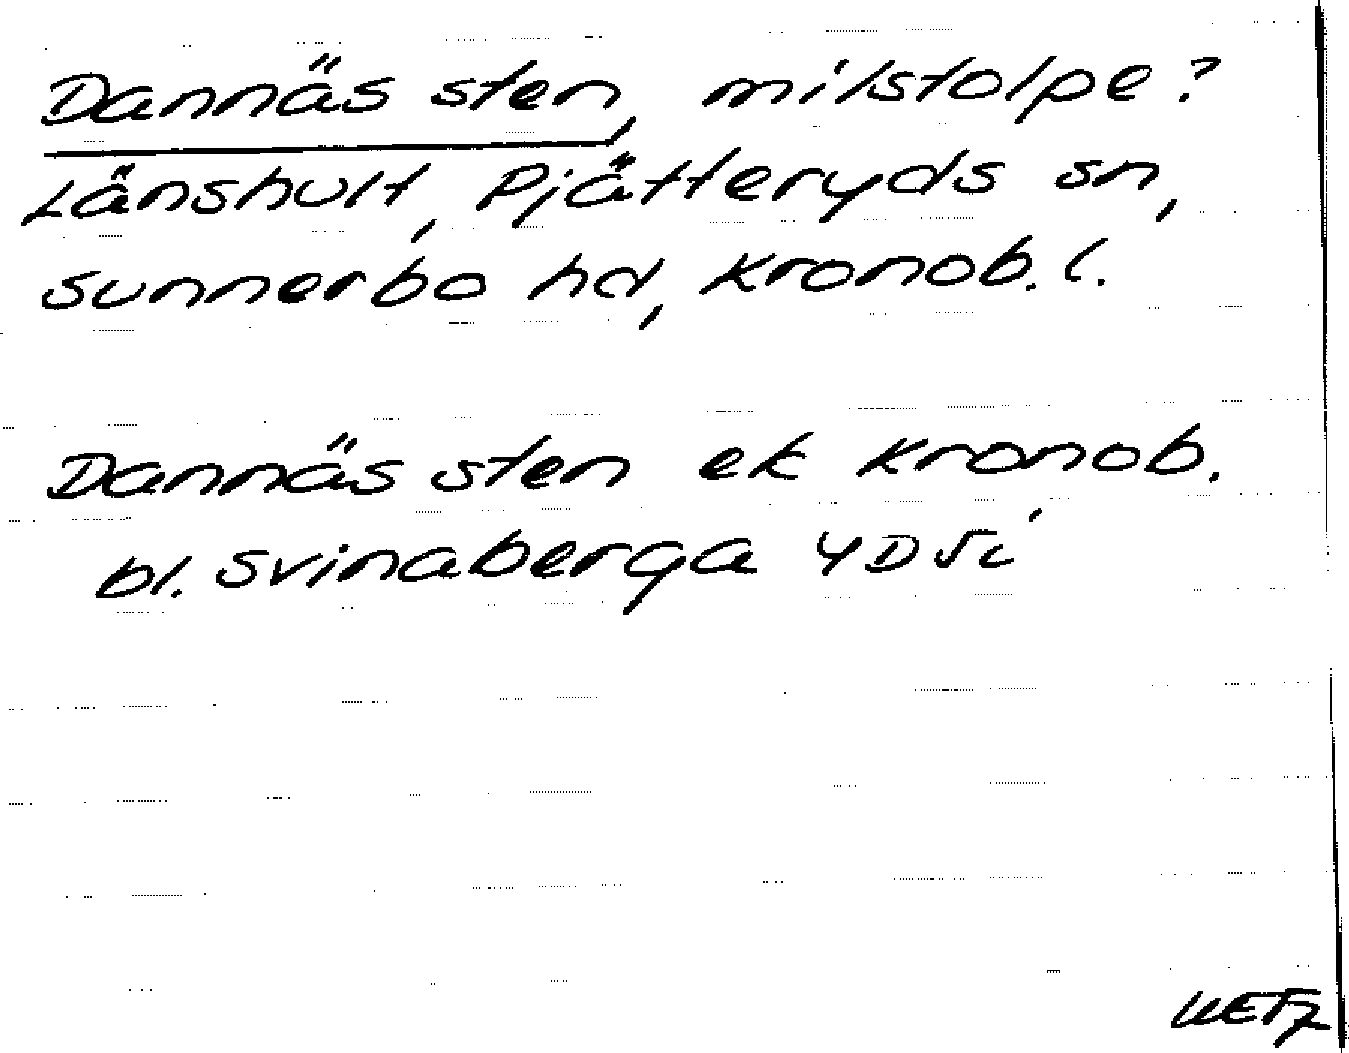 Dannäs sten, milstolpe?
Länshult, Pjätteryds sn,
Sunnerbo hd, Kronob. l.
Dannäs sten ek Kronob.
bl. Svinaberga 4D5i